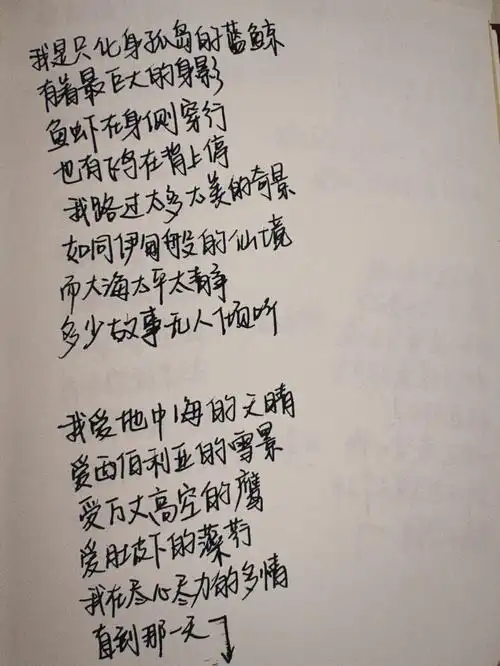 我是只化身孤岛的蓝鲸
有着最巨大的身影
鱼虾在身侧穿行
也有飞鸟在背上停
我路过太多太美的奇景
如同伊甸般的仙境
而大海太平太静
多少故事无人倾听
我爱地中海的天晴
爱西伯利亚的雪景
爱万丈高空的鹰
爱肚皮下的藻荇
我在尽心尽力的多情
直到那一天